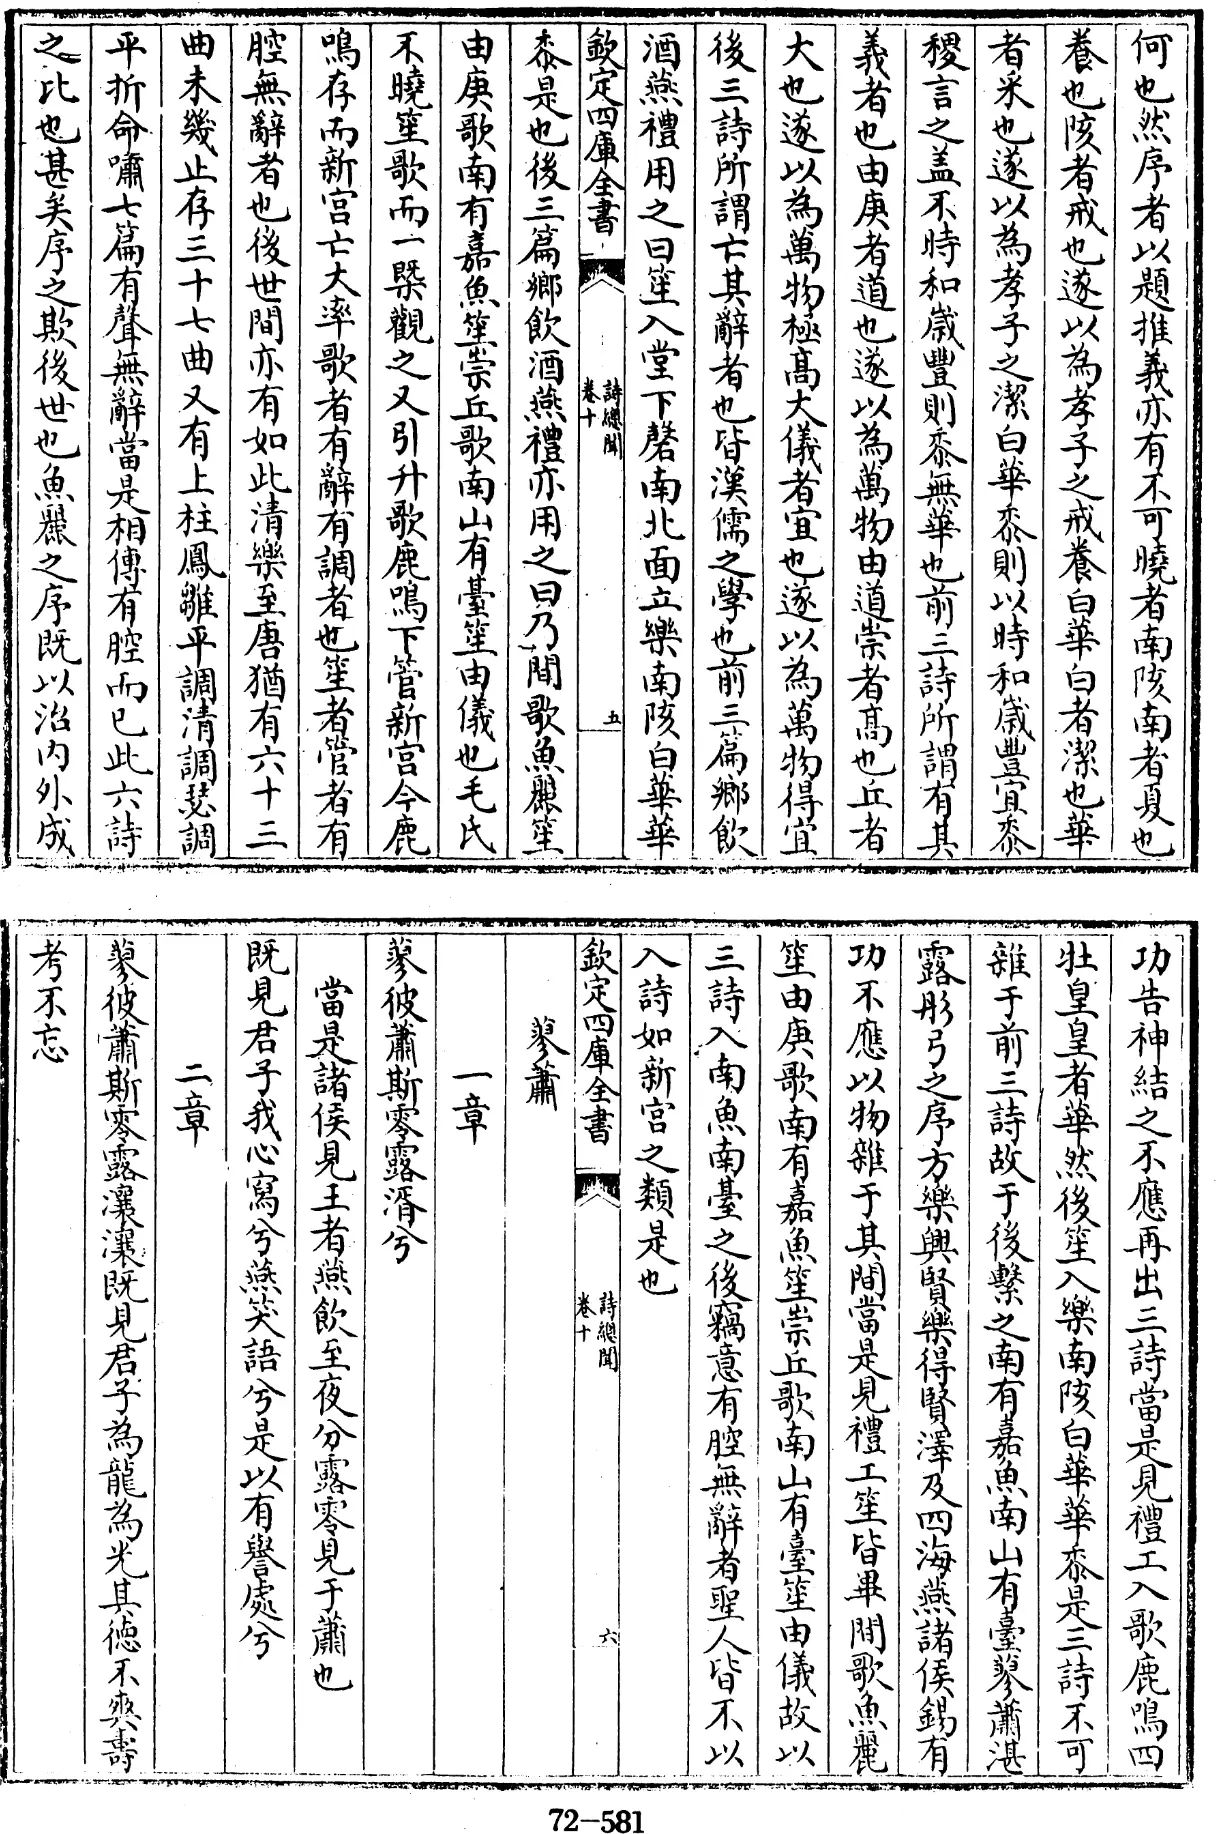 何也然序者以題推義亦有不可曉者南陔南者夏也
養也陔者戒也遂以為孝子之戒養白華白者潔也華
者采也遂以為孝子之潔白華黍則以時和歲豐宜黍
稷言之盖不時和歲豐則黍無華也前三詩所謂有其
義者也由庚者道也遂以為萬物由道崇者高也丘者
大也遂以為萬物極高大儀者宜也遂以為萬物得宜
後三詩所謂亡其辭者也皆漢儒之學也前三篇鄉飲
酒燕禮用之曰笙入堂下磬南北面立樂南陔白華華
欽定四庫全書
詩總聞
卷十
五
黍是也後三篇鄉飲酒燕禮亦用之曰乃間歌魚麗笙
由庚歌南有嘉魚笙崇丘歌南山有臺笙由儀也毛氏
不曉笙歌而一槩觀之又引升歌鹿鳴下管新宮今鹿
鳴存而新宮亡大率歌者有辭有調者也笙者管者有
腔無辭者也後世間亦有如此清樂至唐猶有六十三
曲未幾止存三十七曲又有上柱鳳雛平調清調瑟調
平折命嘯七篇有聲無辭當是相傳有腔而已此六詩
之比也甚矣序之欺後世也魚麗之序既以治内外成
功告神結之不應再出三詩當是見禮工入歌鹿鳴四
牡皇皇者華然後笙入樂南陔白華華黍是三詩不可
雜于前三詩故于後繫之南有嘉魚南山有臺蓼蕭湛
露彤弓之序方樂與賢樂得賢澤及四海燕諸侯錫有
功不應以物雜于其間當是見禮工笙皆畢間歌魚麗
笙由庚歌南有嘉魚笙崇丘歌南山有臺笙由儀故以
三詩入南魚南臺之後竊意有腔無辭者聖人皆不以
入詩如新宮之類是也
欽定四庫全書
詩總聞
卷十
六
蓼蕭
一章
蓼彼蕭斯零露湑兮
當是諸侯見王者燕飲至夜分露零見于蕭也
既見君子我心寫兮燕笑語兮是以有譽處兮
二章
蓼彼蕭斯零露瀼瀼既見君子為龍為光其德不爽壽
考不忘
72-581